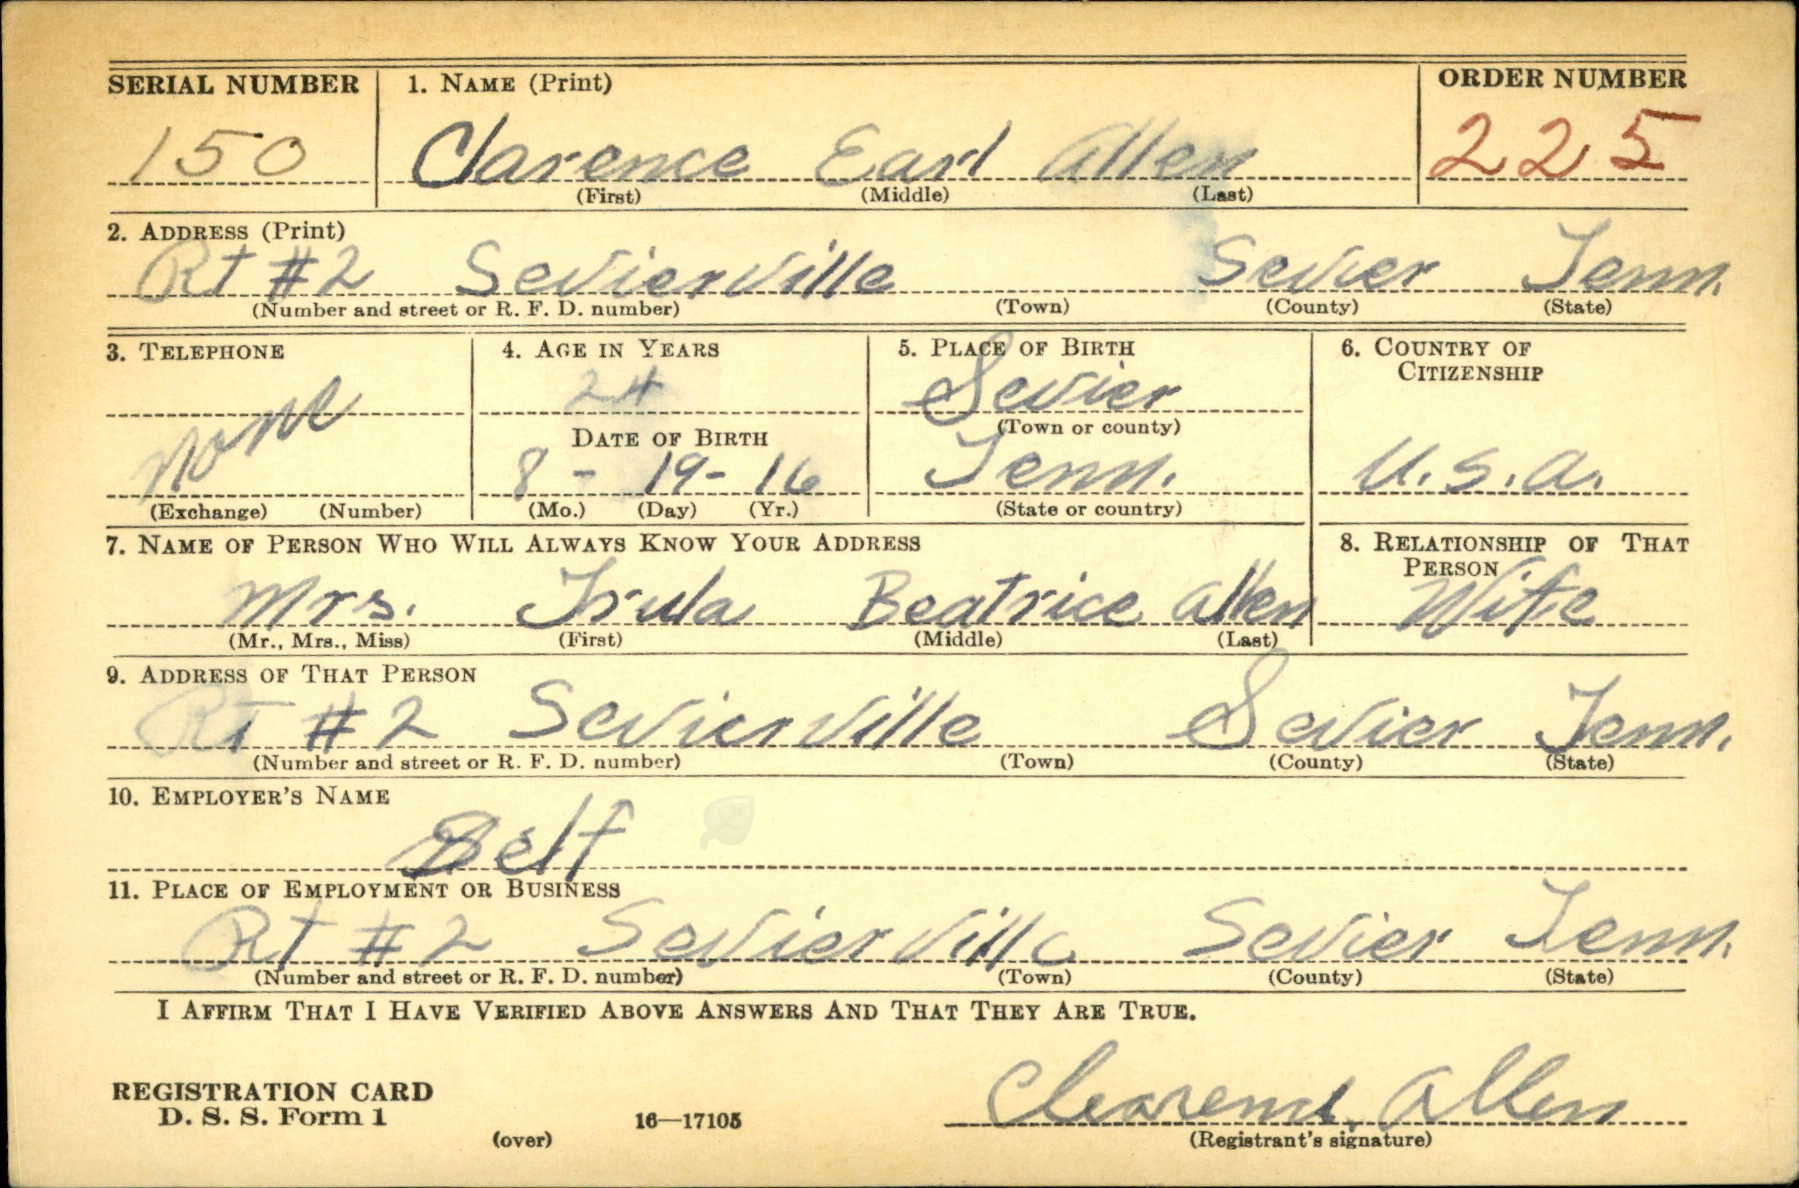 SERIAL NUMBER 1. NAME (Print) ORDER NUMBER
150 Clarence Earl Allen 225
(First) (Middle) (Last)
2. ADDRESS (Print)
Rt #2 Sevierville Sevier Tenn.
(Number and street or R. F. D. number) (Town) (County) (State)
3. TELEPHONE 4. AGE IN YEARS 5. PLACE OF BIRTH 6. COUNTRY OF
CITIZENSHIP
24 Sevier
(Town or county)
none DATE OF BIRTH
8 - 19 - 16 Tenn. U.S.A.
(Exchange) (Number) (Mo.) (Day) (Yr.) (State or country)
7. NAME OF PERSON WHO WILL ALWAYS KNOW YOUR ADDRESS 8. RELATIONSHIP OF THAT
PERSON
Mrs. Beatrice Allen Wife
(Mr., Mrs., Miss) (First) (Middle) (Last)
9. ADDRESS OF THAT PERSON
Rt #2 Sevierville Sevier Tenn.
(Number and street or R. F. D. number) (Town) (County) (State)
10. EMPLOYER'S NAME
Self
11. PLACE OF EMPLOYMENT OR BUSINESS
Rt #2 Sevierville Sevier Tenn.
(Number and street or R. F. D. number) (Town) (County) (State)
I AFFIRM THAT I HAVE VERIFIED ABOVE ANSWERS AND THAT THEY ARE TRUE.
REGISTRATION CARD
D. S. S. Form 1 16—17105 Clearence Allen
(over) (Registrant's signature)